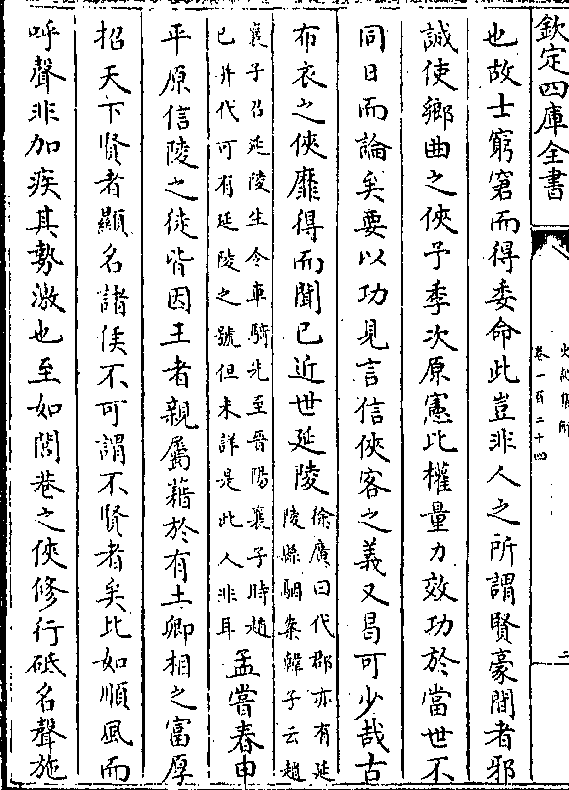 欽定四庫全書
史記集解
卷一百二十四
二
也故士窮窘而得委命此豈非人之所謂賢豪間者邪
誠使鄉曲之俠予季次原憲比權量力效功於當世不
同日而論矣要以功見言信俠客之義又曷可少哉古
布衣之俠靡得而聞已近世延陵徐廣曰代郡亦有延陵縣駰案韓子云趙
襄子召延陵生令車騎先至晉陽襄子時趙已并代可有延陵之號但未詳是此人非耳孟嘗春申
平原信陵之徒皆因王者親屬藉於有土卿相之富厚
招天下賢者顯名諸侯不可謂不賢者矣比如順風而
呼聲非加疾其勢激也至如閭巷之俠修行砥名聲施